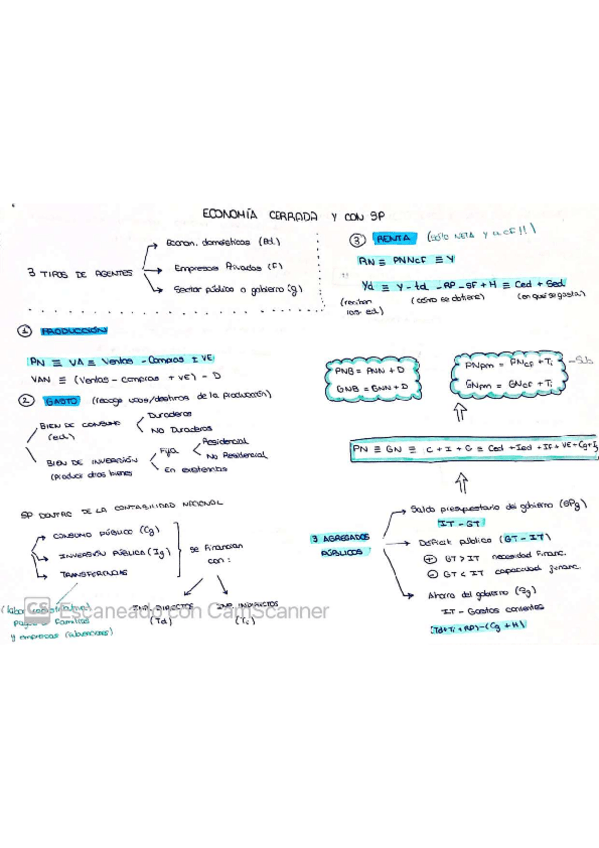 ECONOMÍA CERRADA Y CON SP
3 TIPOS DE AGENTES
Econom. domésticas (Ed.)
Empresas Privadas (F)
Sector público o gobierno (g)
① PRODUCCIÓN
PN ≡ VA ≡ Ventas - Compras ± VE
VAN ≡ (Ventas - compras + VE) - D
② GASTO (recoge usos/destinos de la producción)
BIEN DE CONSUMO (ed.)
Duraderos
No Duraderos
BIEN DE INVERSIÓN (producir otros bienes
Fija
Residencial
No Residencial
En existencias
SP DENTRO DE LA CONTABILIDAD NACIONAL
CONSUMO PÚBLICO (Cg)
INVERSIÓN PÚBLICA (Ig)
TRANSFERENCIAS
se financian
con:
IMP. DIRECTOS (Td)
IMP INDIRECTOS (Ti)
familias
y empresas (subvenciones)
CS Escaneado con CamScanner
③ RENTA (SÓLO NETA Y al CF!!)
RN ≡ PNNcF ≡ Y
Yd ≡ Y - td - RP - SF + H ≡ Ced + Sed
(reciben las ed.)
(cómo se obtiene)
(en qué se gasta)
PNB = PNN + D
GNB = GNN + D
PNpm = PNcF + Ti
GNpm = GNcF + Ti
- Sub
PN ≡ GN ≡ C + I + G ≡ Ced + Ied + IF + VE + Cg + Ig
3 AGREGADOS PÚBLICOS
Saldo presupuestario del gobierno (SPg)
IT - GT
Déficit público (GT - IT)
+ GT > IT necesidad financ.
- GT < IT capacidad financ.
Ahorro del gobierno (Sg)
IT - Gastos corrientes
(Td + Ti + RP) - (Cg + H)